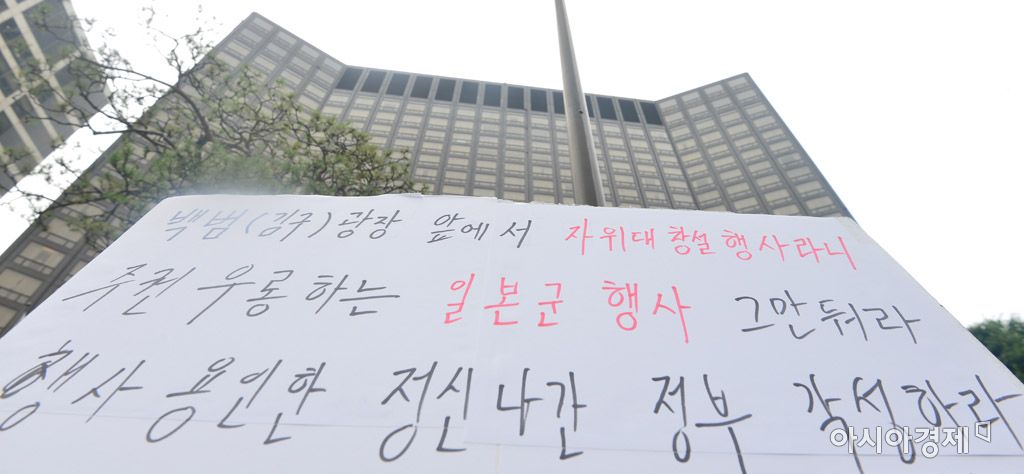 백범(김구)광장 앞에서 자위대 창설 행사라니
주권 우롱하는 일본군 행사 그만둬라
행사 용인한 정신나간 정부 각성하라
아시아경제